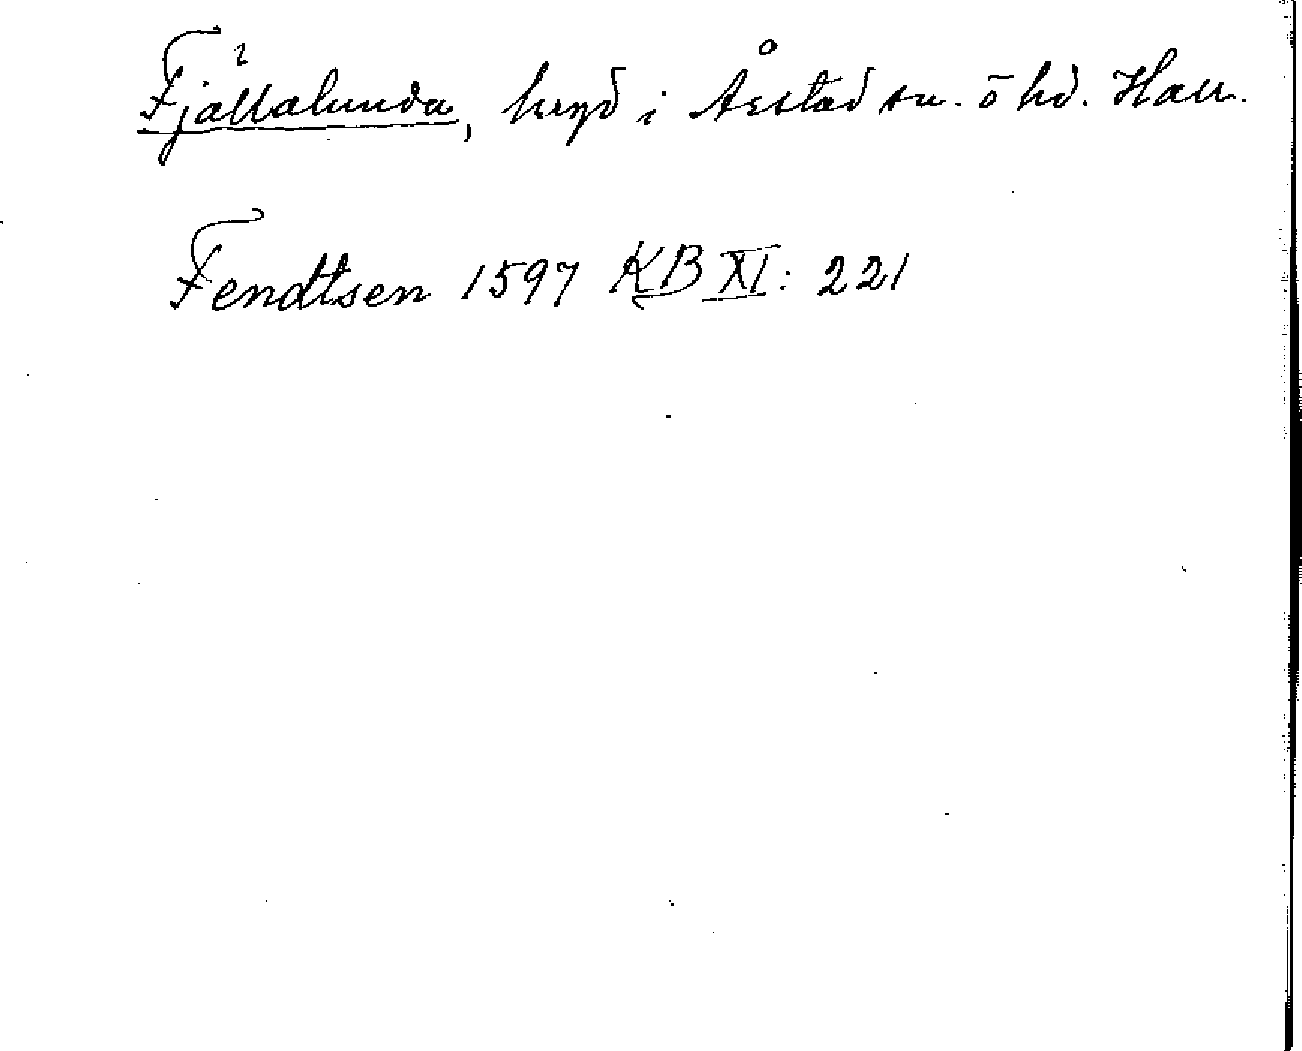 Fjällalunda, kryd i Årstad sn. o hd. Hall.
Fendtsen 1597 KB XI: 221